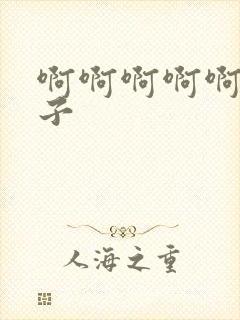 啊啊啊啊啊
子
人海之重